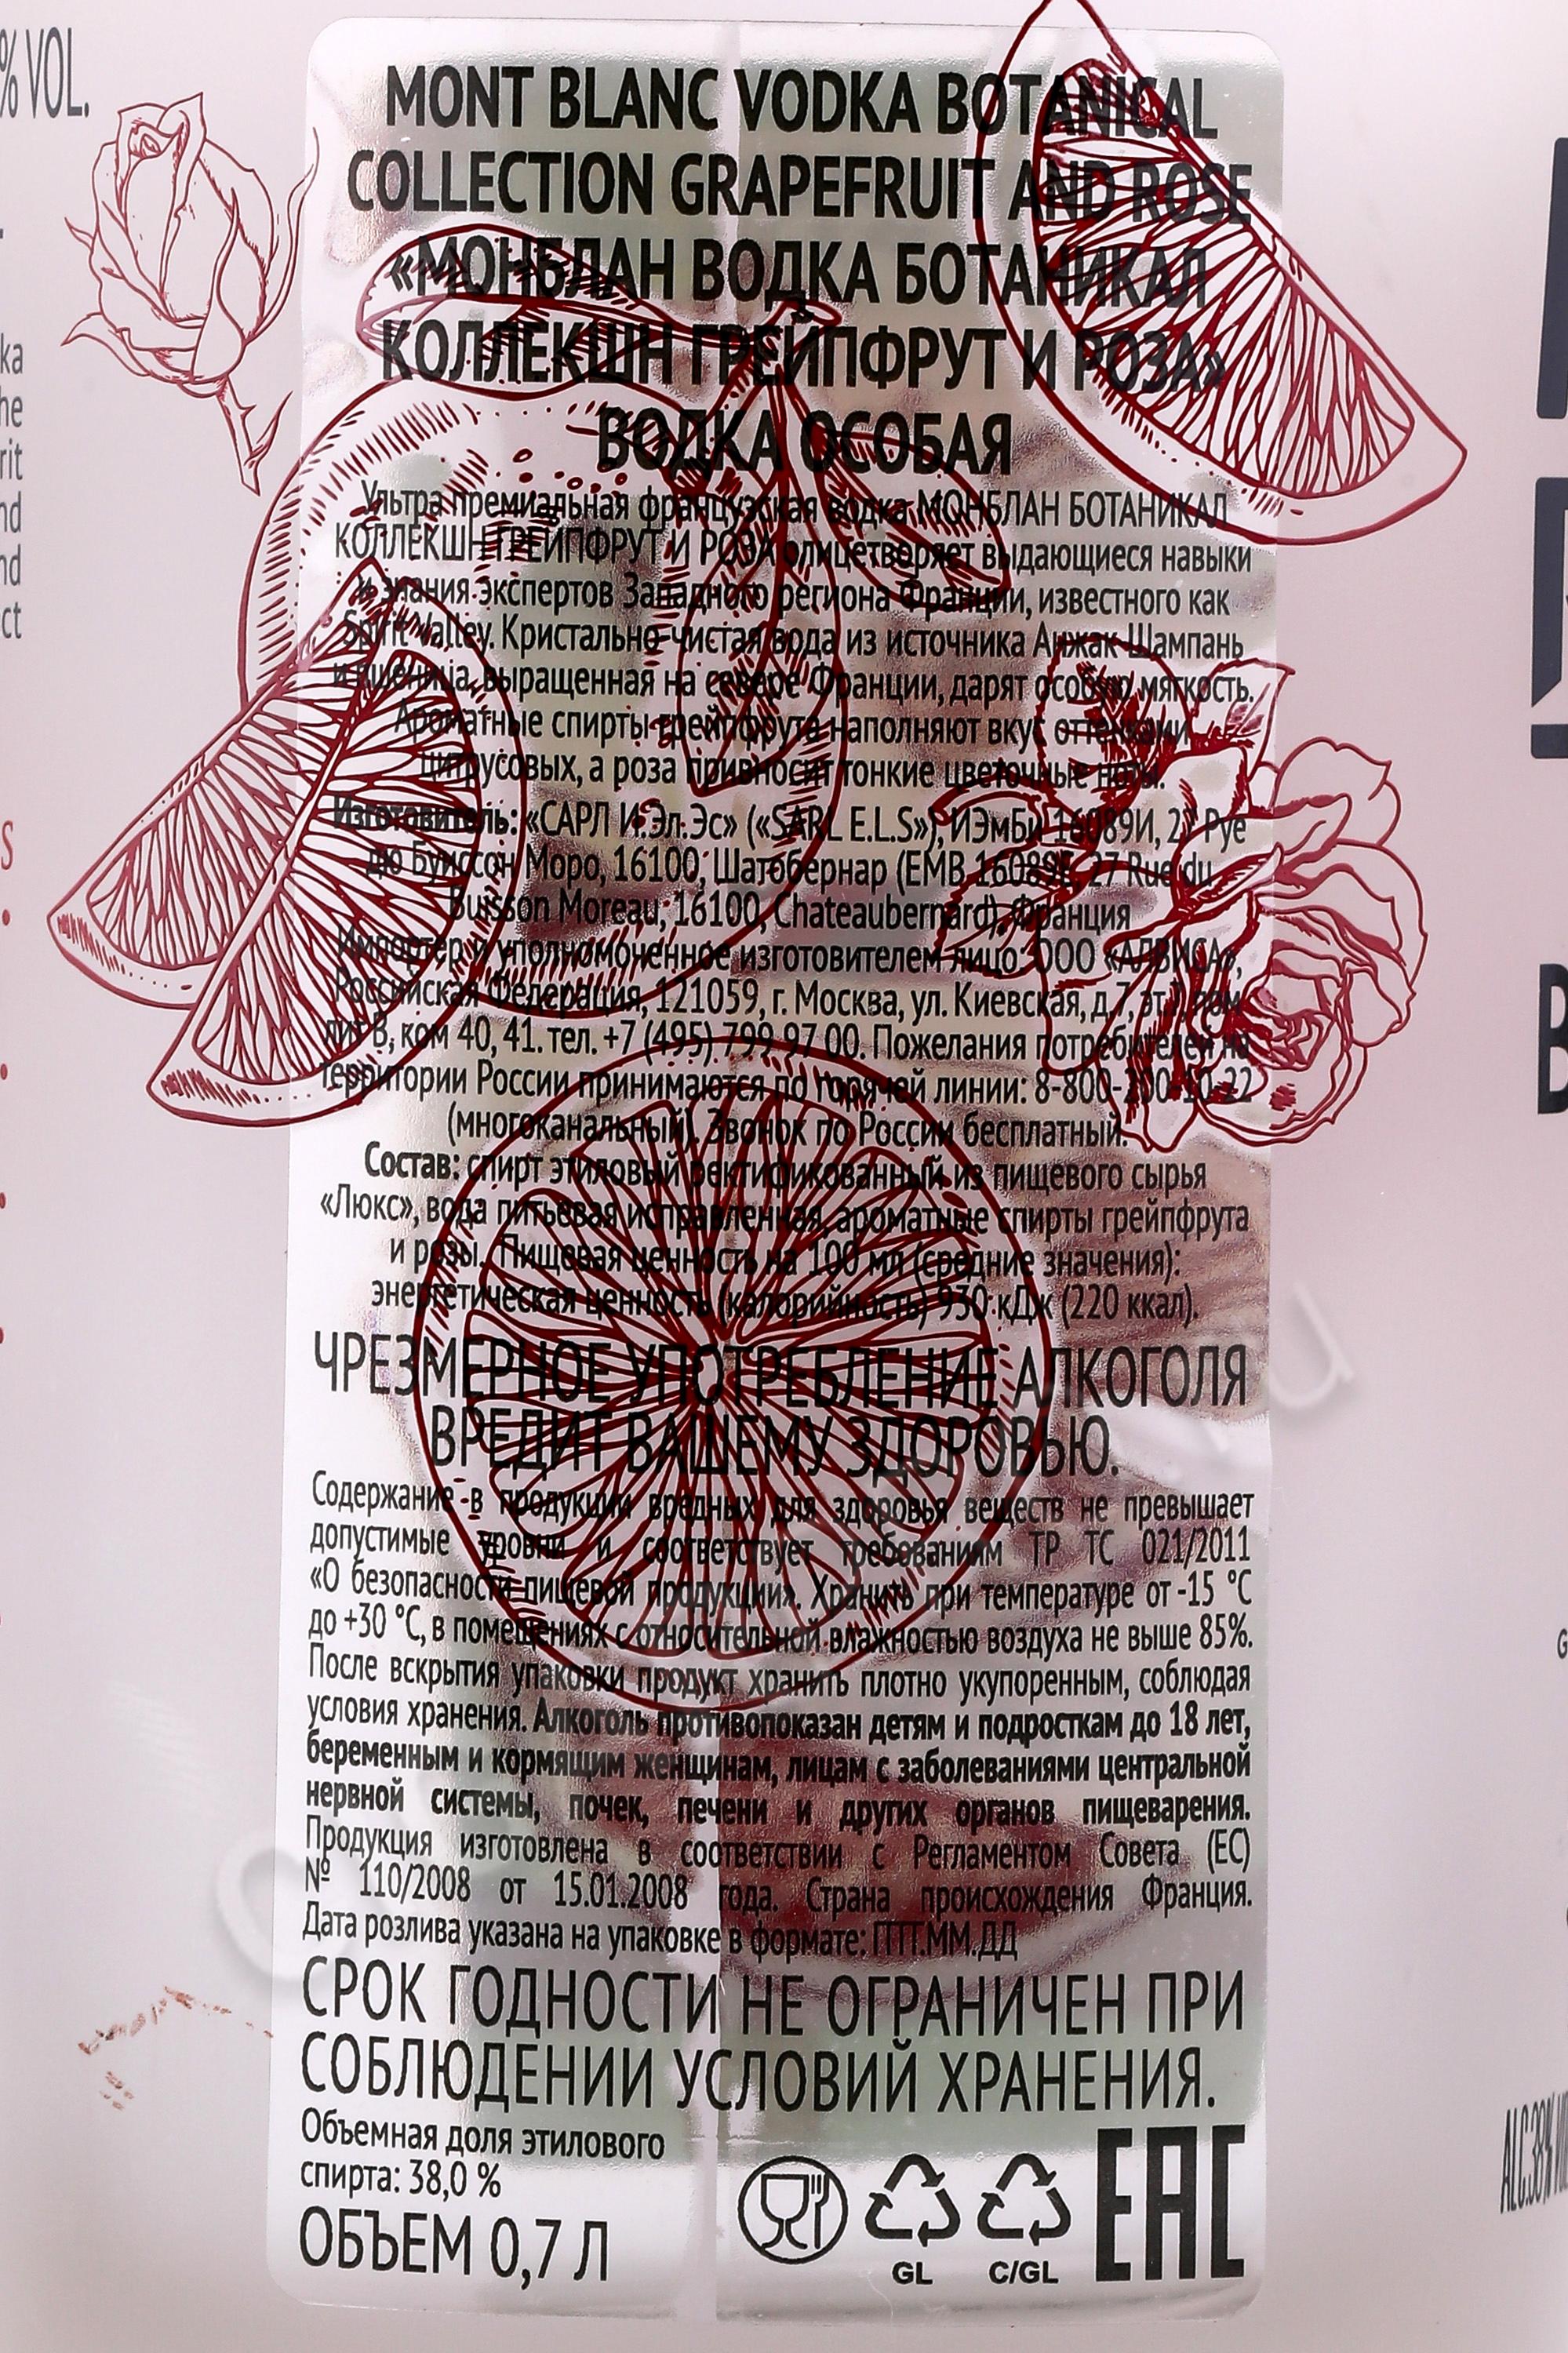 % VOL.
MONT BLANC VODKA BOTANICAL
COLLECTION GRAPEFRUIT AND ROSE
«МОНБЛАН ВОДКА БОТАНИКАЛ
КОЛЛЕКШН ГРЕЙПФРУТ И РОЗА»
ВОДКА ОСОБАЯ
Ультра премиальная французская водка МОНБЛАН БОТАНИКАЛ
КОЛЛЕКШН ГРЕЙПФРУТ И РОЗА олицетворяет выдающиеся навыки
и знания экспертов Западного региона Франции, известного как
Spirit Valley. Кристально-чистая вода из источника Анжак-Шампань
и пшеница, выращенная на севере Франции, дарят особую мягкость.
Ароматные спирты грейпфрута наполняют вкус оттенками
цитрусовых, а роза привносит тонкие цветочные ноты.
Изготовитель: «САРЛ И.Эл.Эс» («SARL E.L.S»), ИЭмБи 16089И, 27 Руе
дю Буиссон Моро, 16100, Шатобернар (EMB 16089E, 27 Rue du
Buisson Moreau, 16100, Chateaubernard), Франция
Импортер и уполномоченное изготовителем лицо: ООО «АЛВИСА»,
Российская Федерация, 121059, г. Москва, ул. Киевская, д.7, эт.
лит В, ком 40, 41. тел. +7 (495) 799 97 00. Пожелания потребителей на
территории России принимаются по горячей линии: 8-800-200-10-22
(многоканальный). Звонок по России бесплатный.
Состав: спирт этиловый ректификованный из пищевого сырья
«Люкс», вода питьевая исправленная, ароматные спирты грейпфрута
и розы. Пищевая ценность на 100 мл (средние значения):
энергетическая ценность (калорийность) 930 кДж (220 ккал).
ЧРЕЗМЕРНОЕ УПОТРЕБЛЕНИЕ АЛКОГОЛЯ
ВРЕДИТ ВАШЕМУ ЗДОРОВЬЮ.
Содержание в продукции вредных для здоровья веществ не превышает
допустимые уровни и соответствует требованиям ТР ТС 021/2011
«О безопасности пищевой продукции». Хранить при температуре от -15 °С
до +30 °С, в помещениях с относительной влажностью воздуха не выше 85%.
После вскрытия упаковки продукт хранить плотно укупоренным, соблюдая
условия хранения. Алкоголь противопоказан детям и подросткам до 18 лет,
беременным и кормящим женщинам, лицам с заболеваниями центральной
нервной системы, почек, печени и других органов пищеварения.
Продукция изготовлена в соответствии с Регламентом Совета (ЕС)
№ 110/2008 от 15.01.2008 года. Страна происхождения Франция.
Дата розлива указана на упаковке в формате: ГГГГ.ММ.ДД
СРОК ГОДНОСТИ НЕ ОГРАНИЧЕН ПРИ
СОБЛЮДЕНИИ УСЛОВИЙ ХРАНЕНИЯ.
Объемная доля этилового
спирта: 38,0 %
ОБЪЕМ 0,7 Л
GL
C/GL
EAC